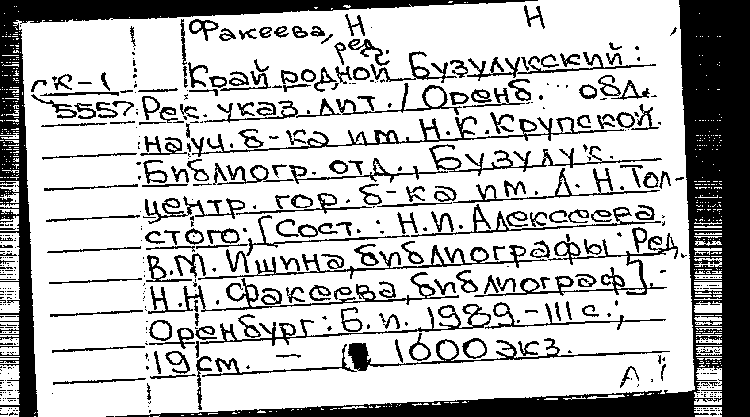 Факеева, Н. Н
ред.
СК-1 Край родной Бузулукский :
5557 Рек. указ. лит. / Оренб. обл.
науч. б-ка им. Н. К. Крупской.
Библиогр. отд., Бузулук.
центр. гор. б-ка им. Л. Н. Тол-
стого; [Сост. : Н. И. Алексеева,
В. М. Ишина, библиографы ; Ред.
Н. Н. Факеева, библиограф]. -
Оренбург : Б. и., 1989. - 111 с. ;
19 см. - 1000 экз.